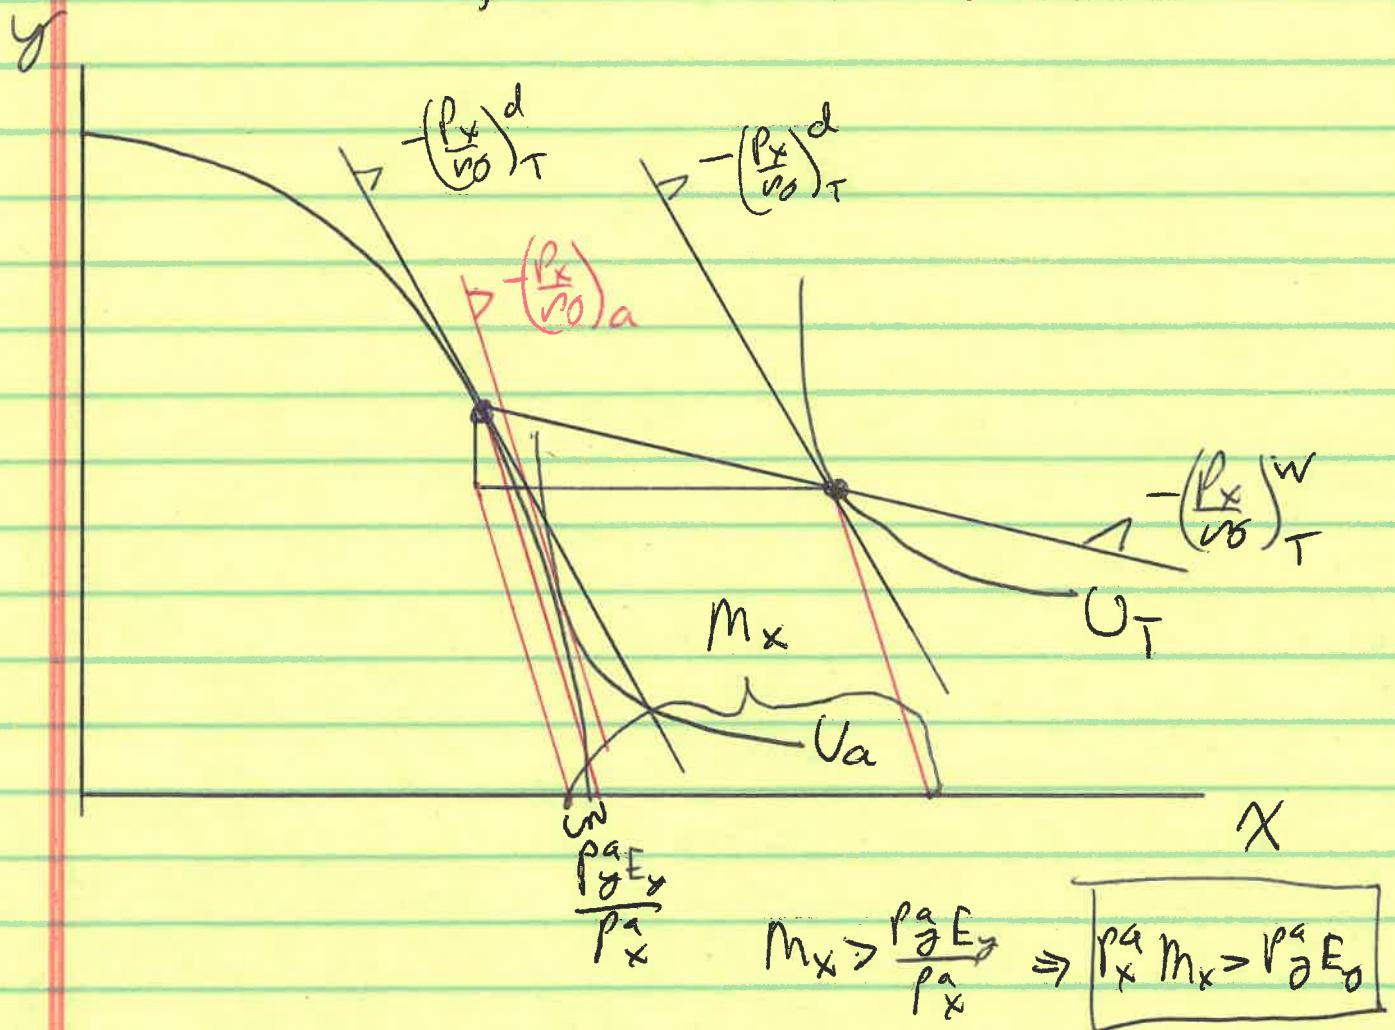 y
-(Px/Py)^d_T
-(Px/Py)^d_T
-(Px/Py)_a
-(Px/Py)^W_T
U_T
M_x
U_a
X
P^a_y E_y / P^a_x
M_x > P^a_y E_y / P^a_x ⇒ P^a_x M_x > P^a_y E_y